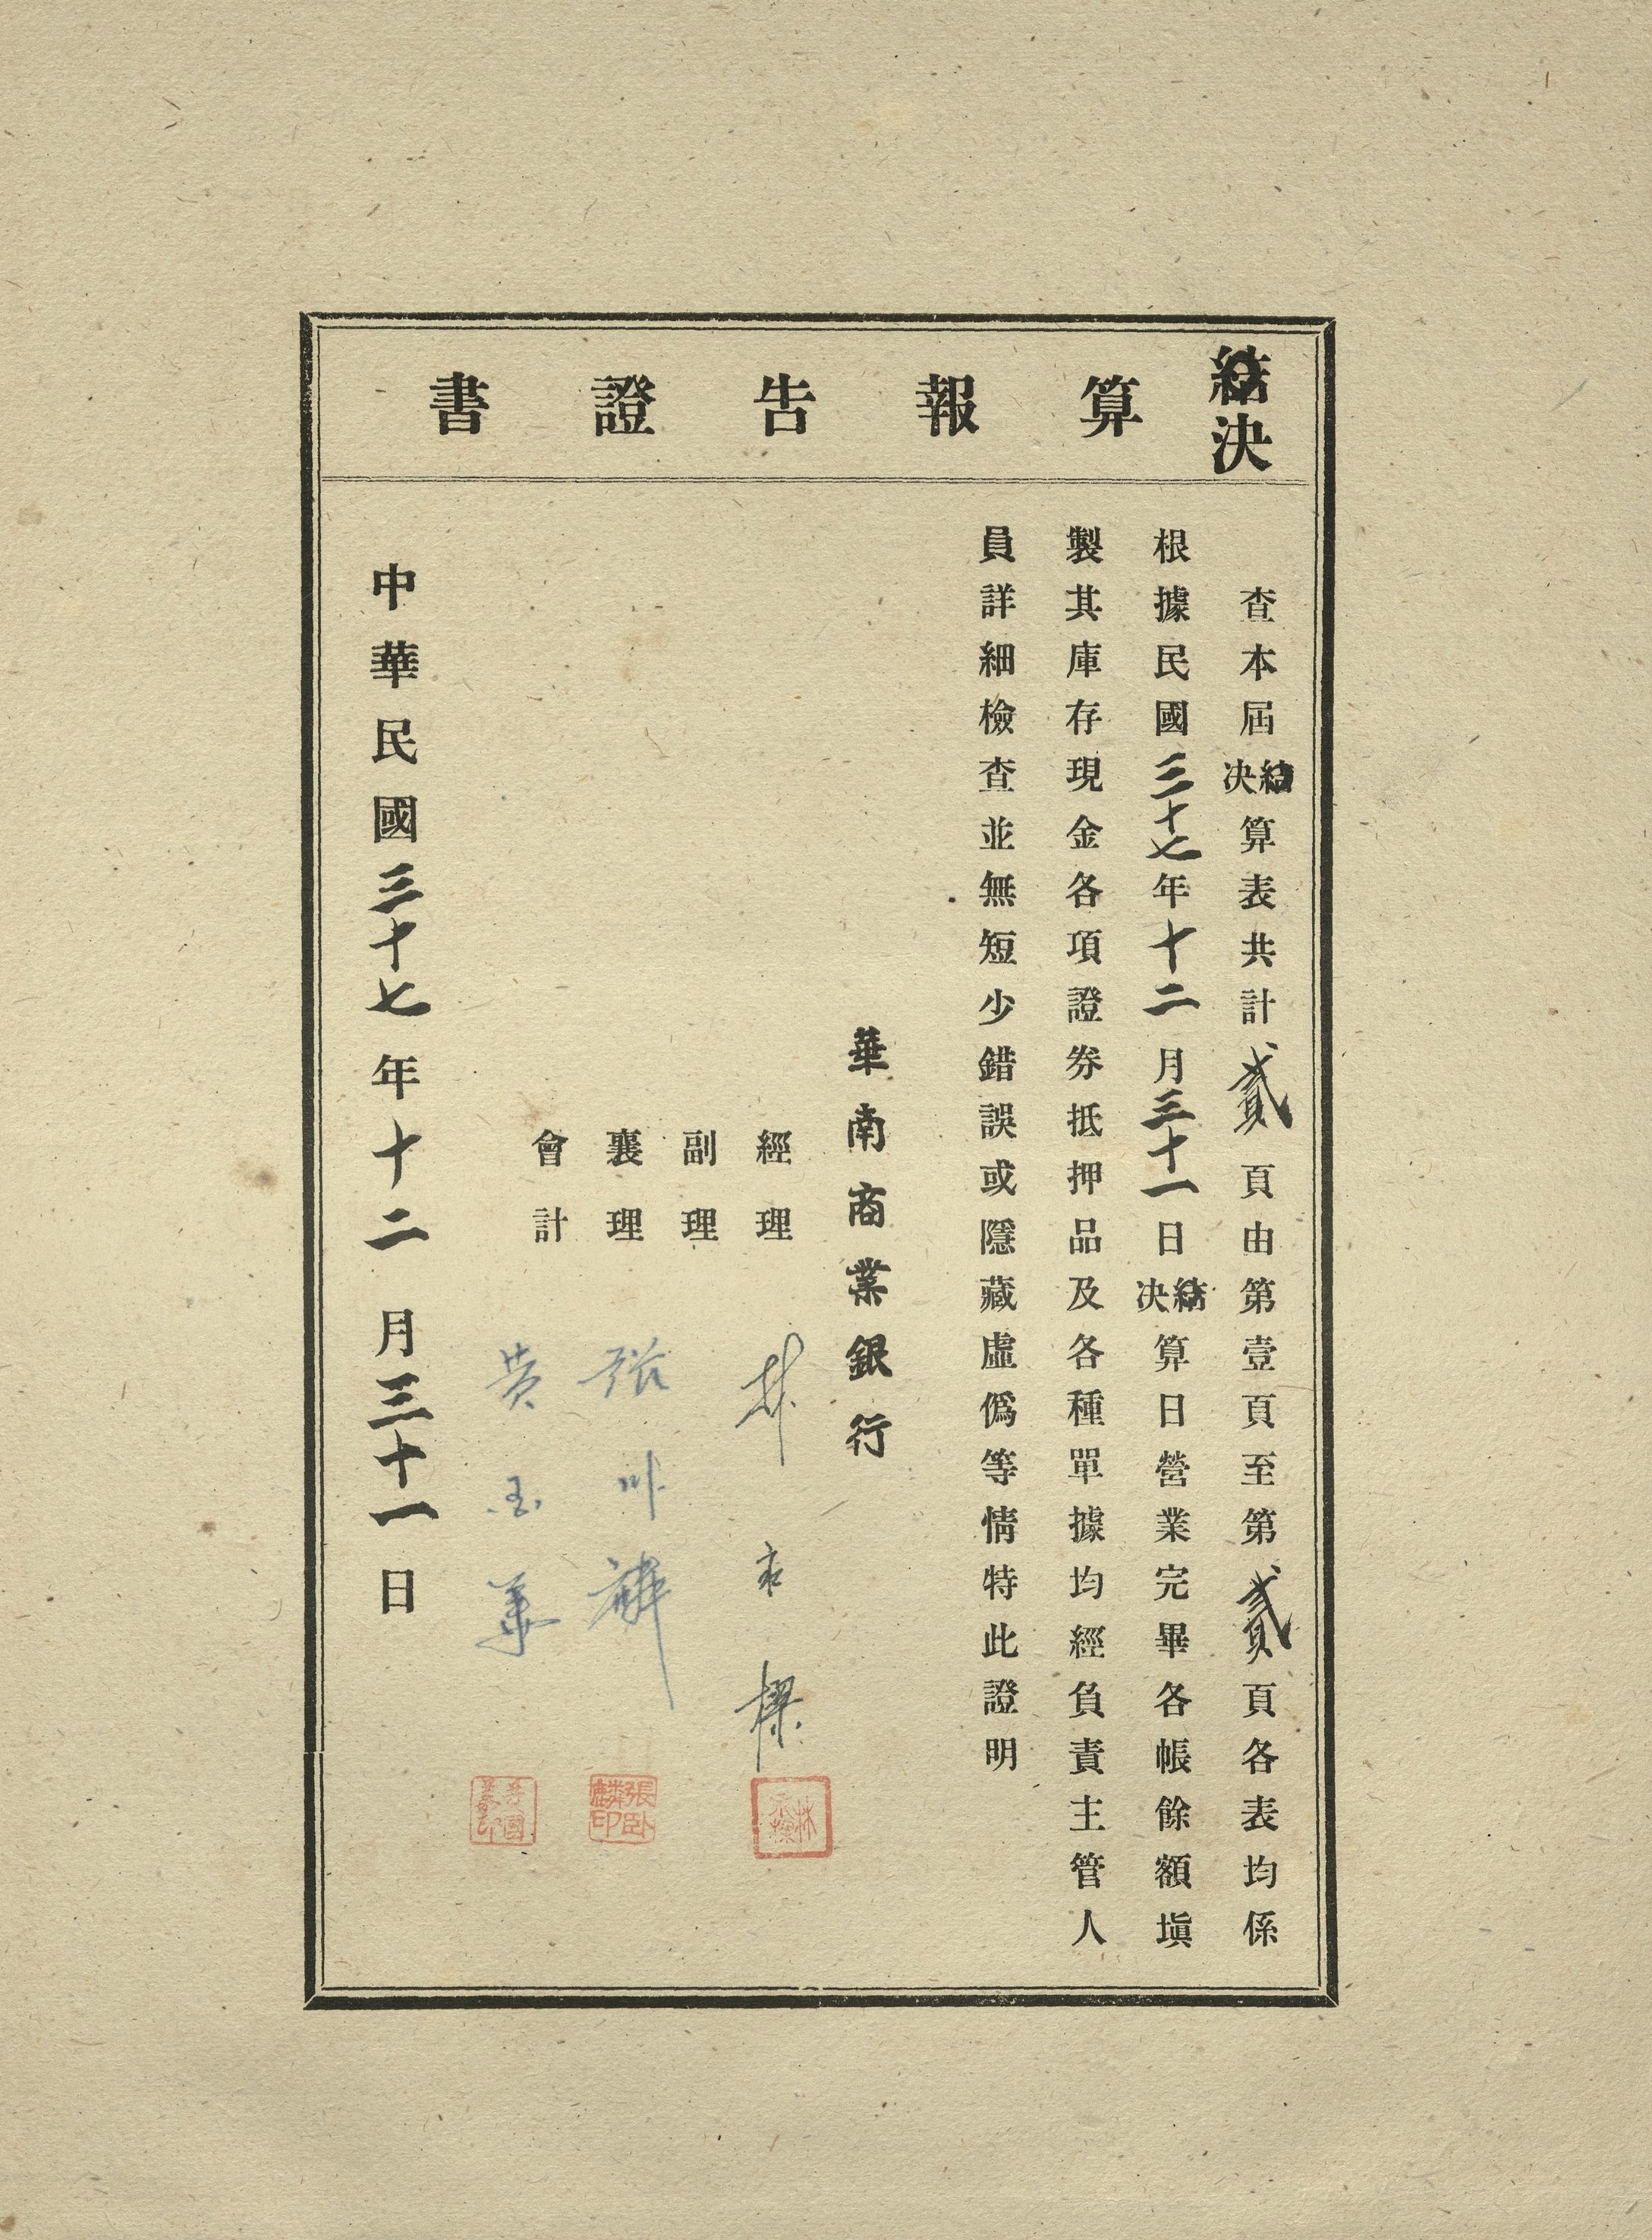 結決算報告證書
查本屆結決算表共計貳頁由第壹頁至第貳頁各表均係
根據民國三十七年十二月三十一日結決算日營業完畢各帳餘額塡
製其庫存現金各項證券抵押品及各種單據均經負責主管人
員詳細檢查並無短少錯誤或隱藏虛僞等情特此證明
華南商業銀行
經理
副理
襄理 張卧麟
張卧麟印
會計 黃國
中華民國三十七年十二月三十一日